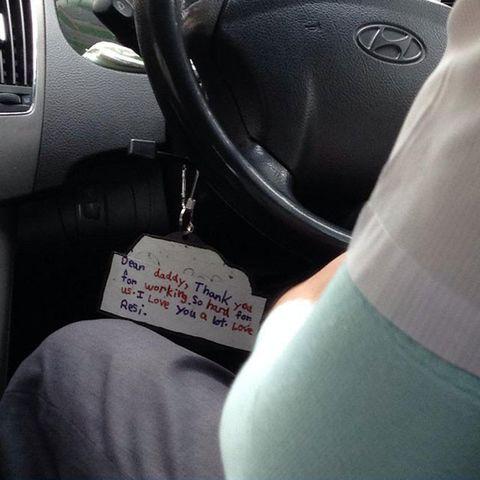 Dear daddy, Thank you
for working so hard for
us. I Love you a lot. Love
Resi.